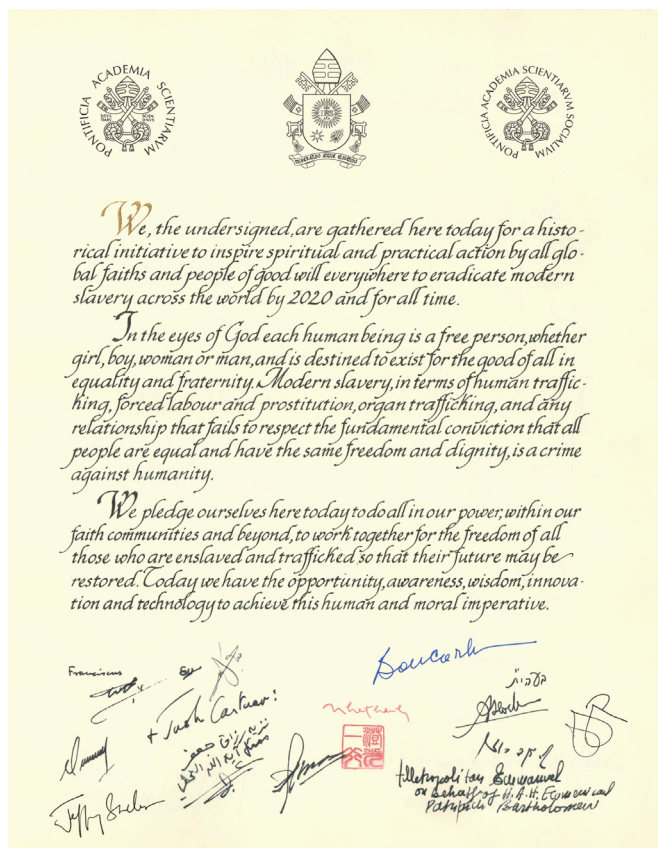 PONTIFICIA ACADEMIA SCIENTIARVM
PONTIFICIA ACADEMIA SCIENTIARVM SOCIALIVM
We, the undersigned, are gathered here today for a histo-
rical initiative to inspire spiritual and practical action by all glo-
bal faiths and people of good will everywhere to eradicate modern
slavery across the world by 2020 and for all time.
In the eyes of God each human being is a free person, whether
girl, boy, woman or man, and is destined to exist for the good of all in
equality and fraternity. Modern slavery, in terms of human traffic-
king, forced labour and prostitution, organ trafficking, and any
relationship that fails to respect the fundamental conviction that all
people are equal and have the same freedom and dignity, is a crime
against humanity.
We pledge ourselves here today to do all in our power, within our
faith communities and beyond, to work together for the freedom of all
those who are enslaved and trafficked so that their future may be
restored. Today we have the opportunity, awareness, wisdom, innova-
tion and technology to achieve this human and moral imperative.
Franciscus
+ Justin Cantuar:
+ Metropolitan Emmanuel
on behalf of H.A.H. Ecumenical
Patriarch Bartholomew